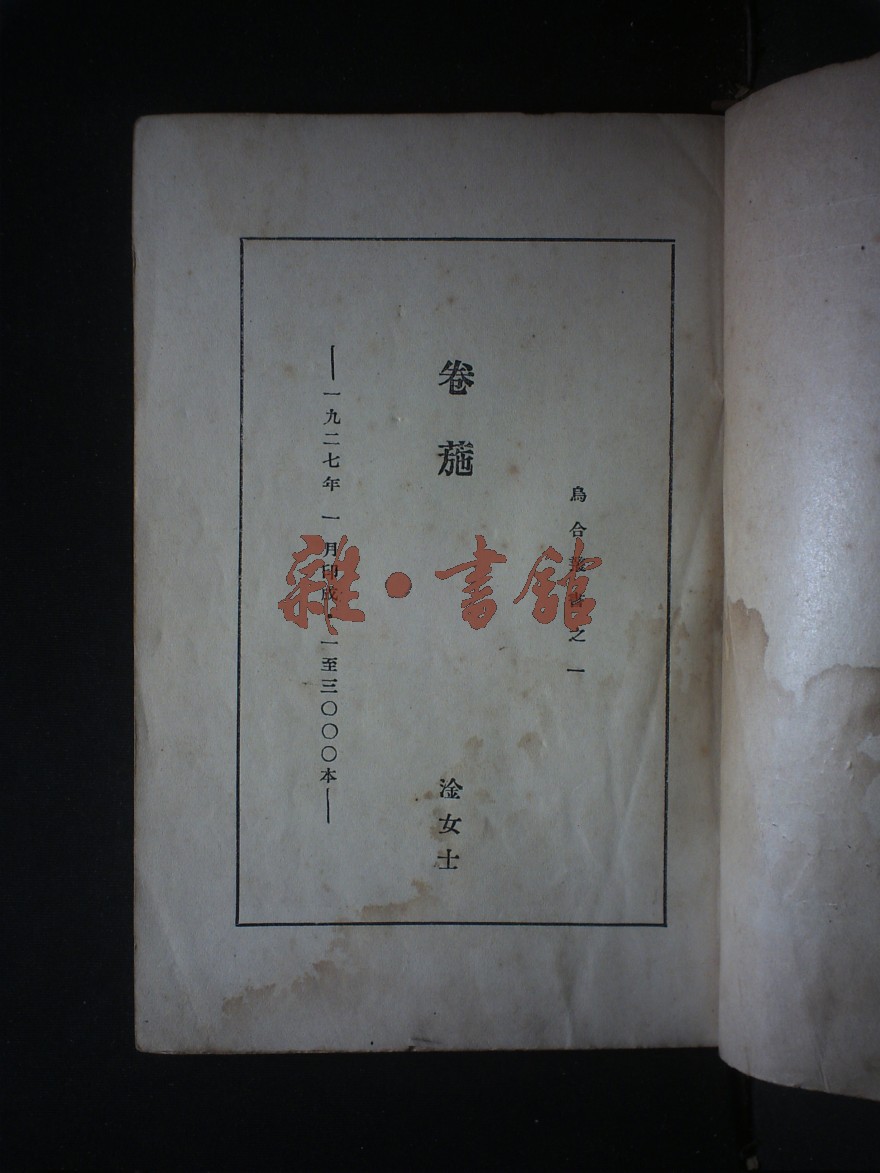 烏合叢書之一
卷葹
淦女士
——一九二七年一月印成・一至三〇〇〇本——
雜・書館